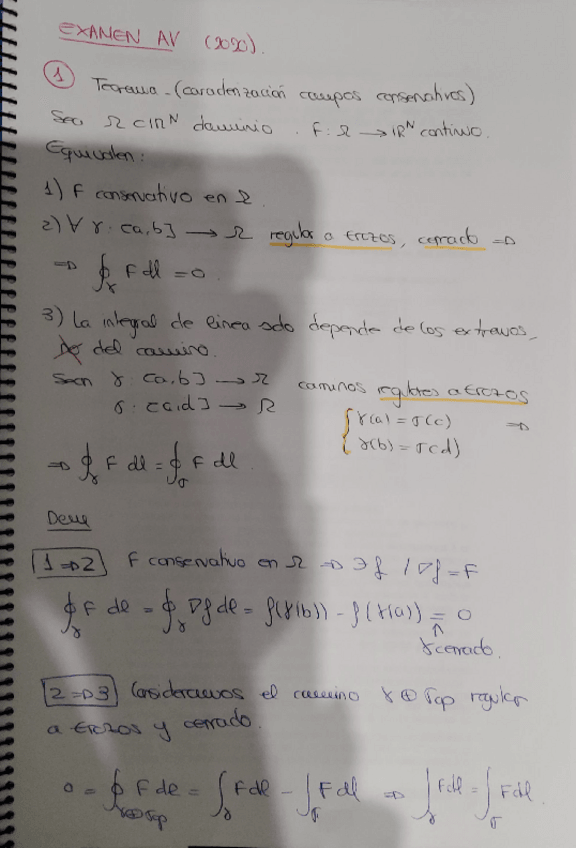 EXAMEN AV (2020).
① Teorema - (caracterización campos conservativos)
Sea Ω ⊂ IR^N dominio. F: Ω → IR^N continuo.
Equivalen:
1) F conservativo en Ω.
2) ∀ γ: [a,b] → Ω regular a trozos, cerrado ⇒
⇒ ∮_γ F dl = 0.
3) La integral de línea solo depende de los extremos,
no del camino.
Sean γ: [a,b] → Ω caminos regulares a trozos
σ: [c,d] → Ω { γ(a) = σ(c) ⇒
γ(b) = σ(d)
⇒ ∮_γ F dl = ∮_σ F dl.
Dem
1⇒2 F conservativo en Ω ⇒ ∃ f / ∇f = F
∮_γ F dl = ∮_γ ∇f dl = f(γ(b)) - f(γ(a)) = 0
↑
γ cerrado.
2⇒3 Consideramos el camino γ ⊕ σop regular
a trozos y cerrado.
0 = ∮_γ⊕σop F dl = ∫_γ F dl - ∫_σ F dl ⇒ ∫_γ F dl = ∫_σ F dl.